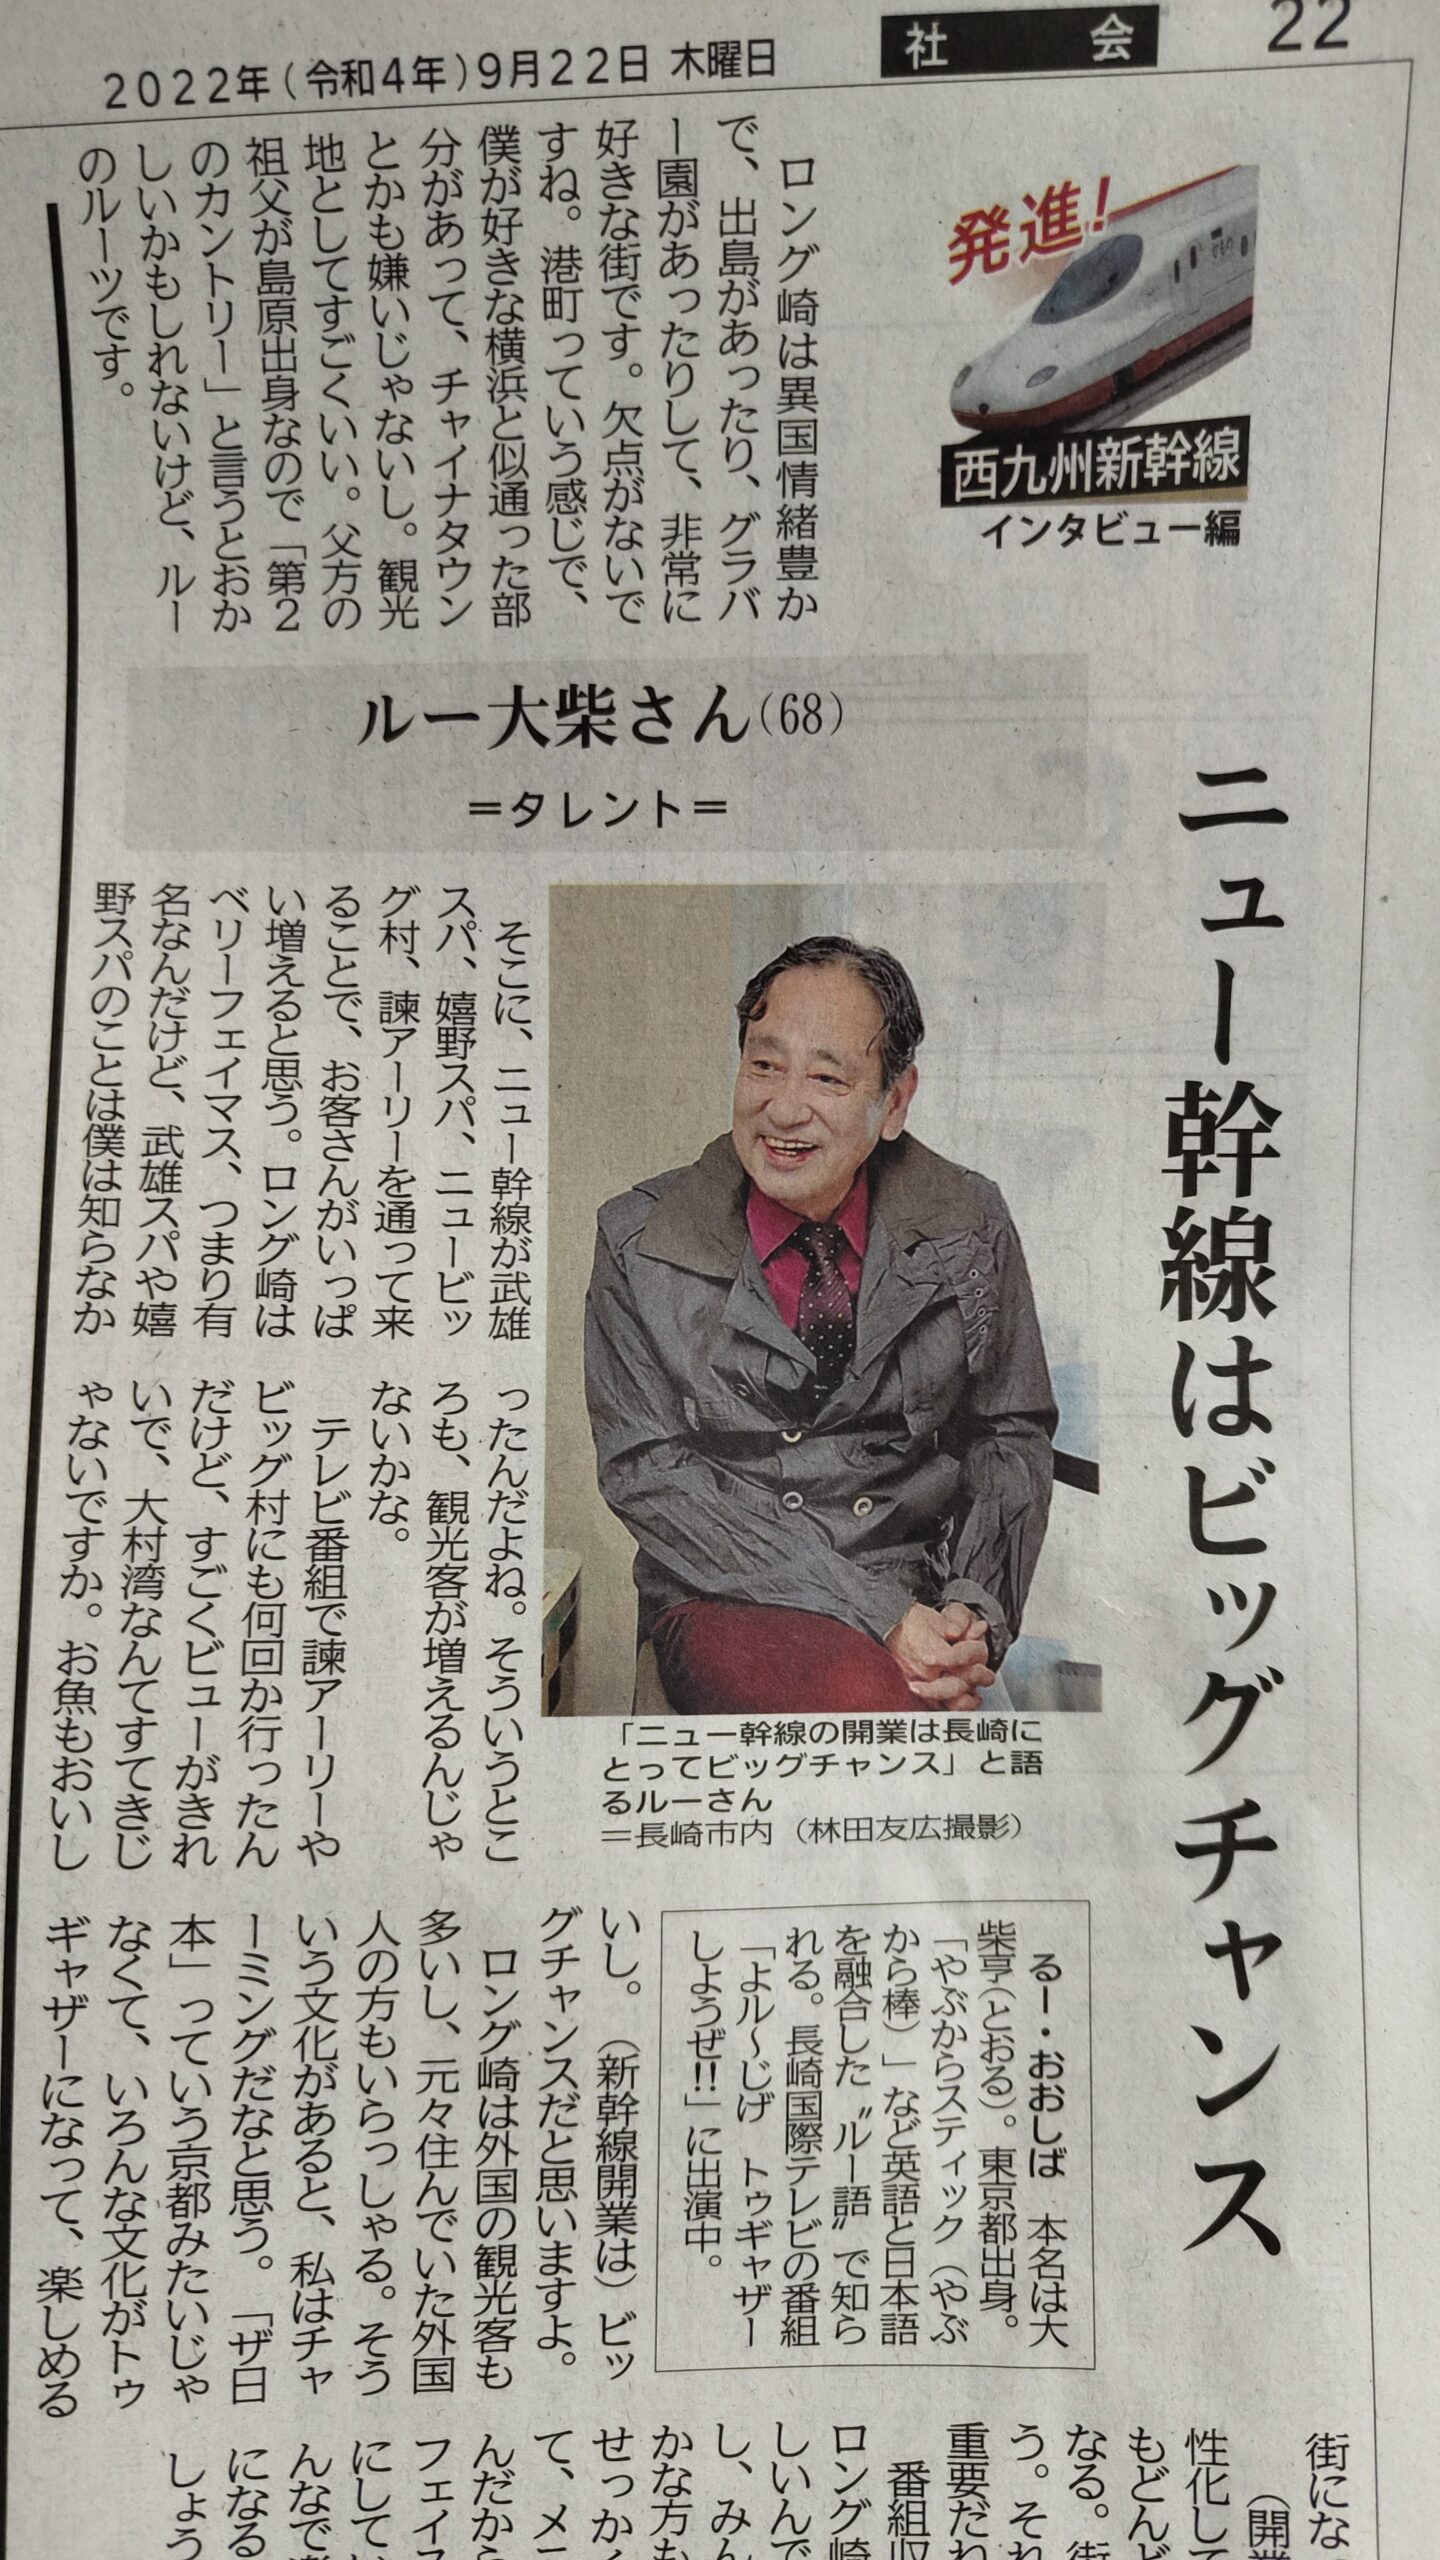 2022年（令和4年）9月22日 木曜日
社会
22
発進！
西九州新幹線
インタビュー編
ニュー幹線はビッグチャンス
ロング崎は異国情緒豊か
で、出島があったり、グラバ
ー園があったりして、非常に
好きな街です。欠点がないで
すね。港町っていう感じで、
僕が好きな横浜と似通った部
分があって、チャイナタウン
とかも嫌いじゃないし。観光
地としてすごくいい。父方の
祖父が島原出身なので「第2
のカントリー」と言うとおか
しいかもしれないけど、ルー
のルーツです。
ルー大柴さん（68）
＝タレント＝
そこに、ニュー幹線が武雄
スパ、嬉野スパ、ニュービッ
グ村、諫アーリーを通って来
ることで、お客さんがいっぱ
い増えると思う。ロング崎は
ベリーフェイマス、つまり有
名なんだけど、武雄スパや嬉
野スパのことは僕は知らなか
ったんだよね。そういうとこ
ろも、観光客が増えるんじゃ
ないかな。
テレビ番組で諫アーリーや
ビッグ村にも何回か行ったん
だけど、すごくビューがきれ
いで、大村湾なんてすてきじ
ゃないですか。お魚もおいし
「ニュー幹線の開業は長崎に
とってビッグチャンス」と語
るルーさん
＝長崎市内（林田友広撮影）
るー・おおしば 本名は大
柴亨（とおる）。東京都出身。
「やぶからスティック（やぶ
から棒）」など英語と日本語
を融合した〝ルー語〟で知ら
れる。長崎国際テレビの番組
「よル～じげ トゥギャザー
しようぜ!!」に出演中。
いし。（新幹線開業は）ビッ
グチャンスだと思いますよ。
ロング崎は外国の観光客も
多いし、元々住んでいた外国
人の方もいらっしゃる。そう
いう文化があると、私はチャ
ーミングだなと思う。「ザ日
本」っていう京都みたいじゃ
なくて、いろんな文化がトゥ
ギャザーになって、楽しめる
街にな
（開業
性化して
もどんど
なる。街
う。それ
重要だね
番組収
ロング崎
しいんで
し、みん
かな方も
せっかく
て、メニ
んだから
フェイス
にしてい
んなで楽
になる
しょう